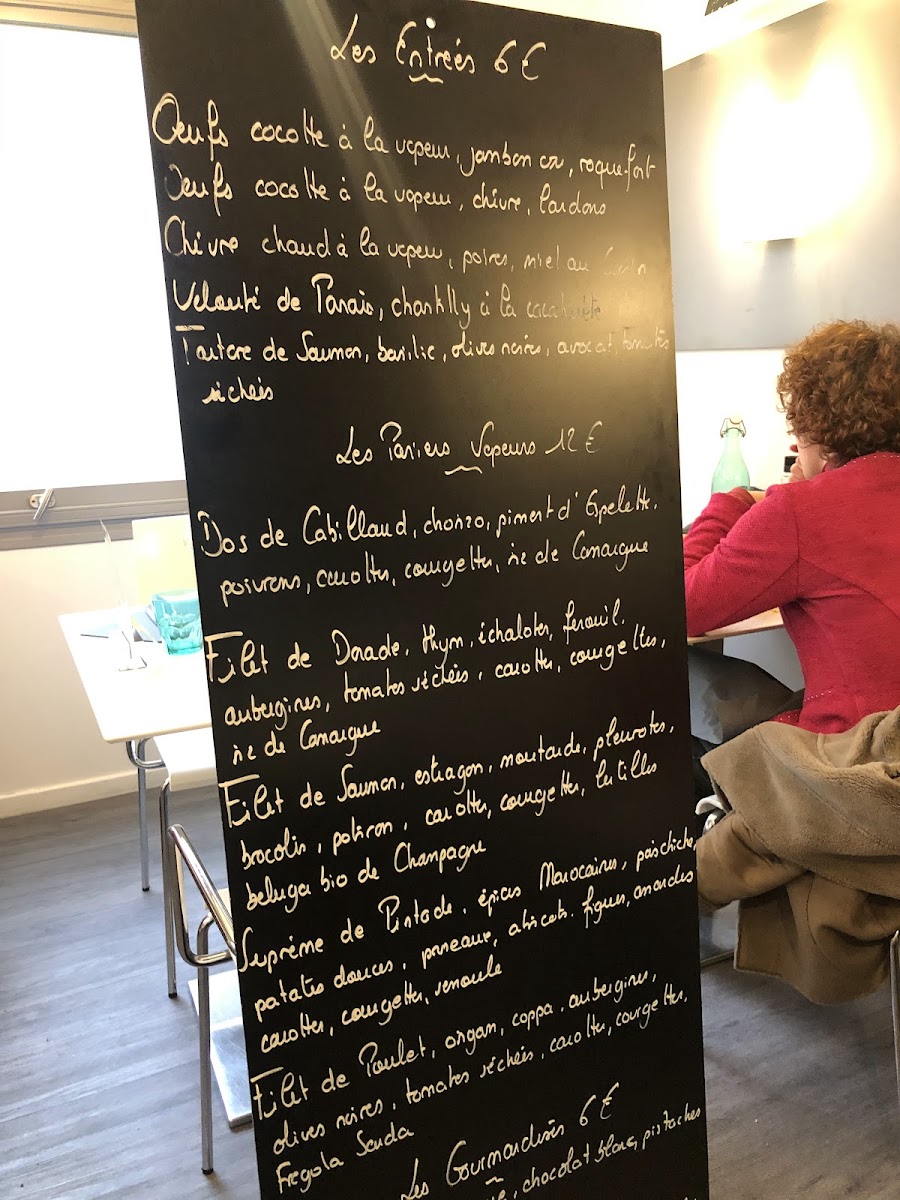 Les Entrées 6 €
Oeufs cocotte à la vapeur, jambon cru, roquefort
Oeufs cocotte à la vapeur, chèvre, lardons
Chèvre chaud à la vapeur, poires, miel au
Velouté de Panais, chantilly à la cacahuète
Tartare de Saumon, basilic, olives noires, avocat, tomates
séchées
Les Paniers Vapeurs 12 €
Dos de Cabillaud, chorizo, piment d'Espelette,
poivrons, carottes, courgettes, riz de Camargue
Filet de Dorade, thym, échalotes, fenouil,
aubergines, tomates séchées, carottes, courgettes,
riz de Camargue
Filet de Saumon, estragon, moutarde, pleurotes,
brocolis, potiron, carottes, courgettes, lentilles
beluga bio de Champagne
Suprême de Pintade, épices Marocaines, pois chiche,
patates douces, pruneaux, abricots, figues, amandes
carottes, courgettes, semoule
Filet de Poulet, origan, coppa, aubergines,
olives noires, tomates séchées, carottes, courgettes,
Fregola Sarda
Les Gourmandises 6 €
, chocolat blanc, pistaches